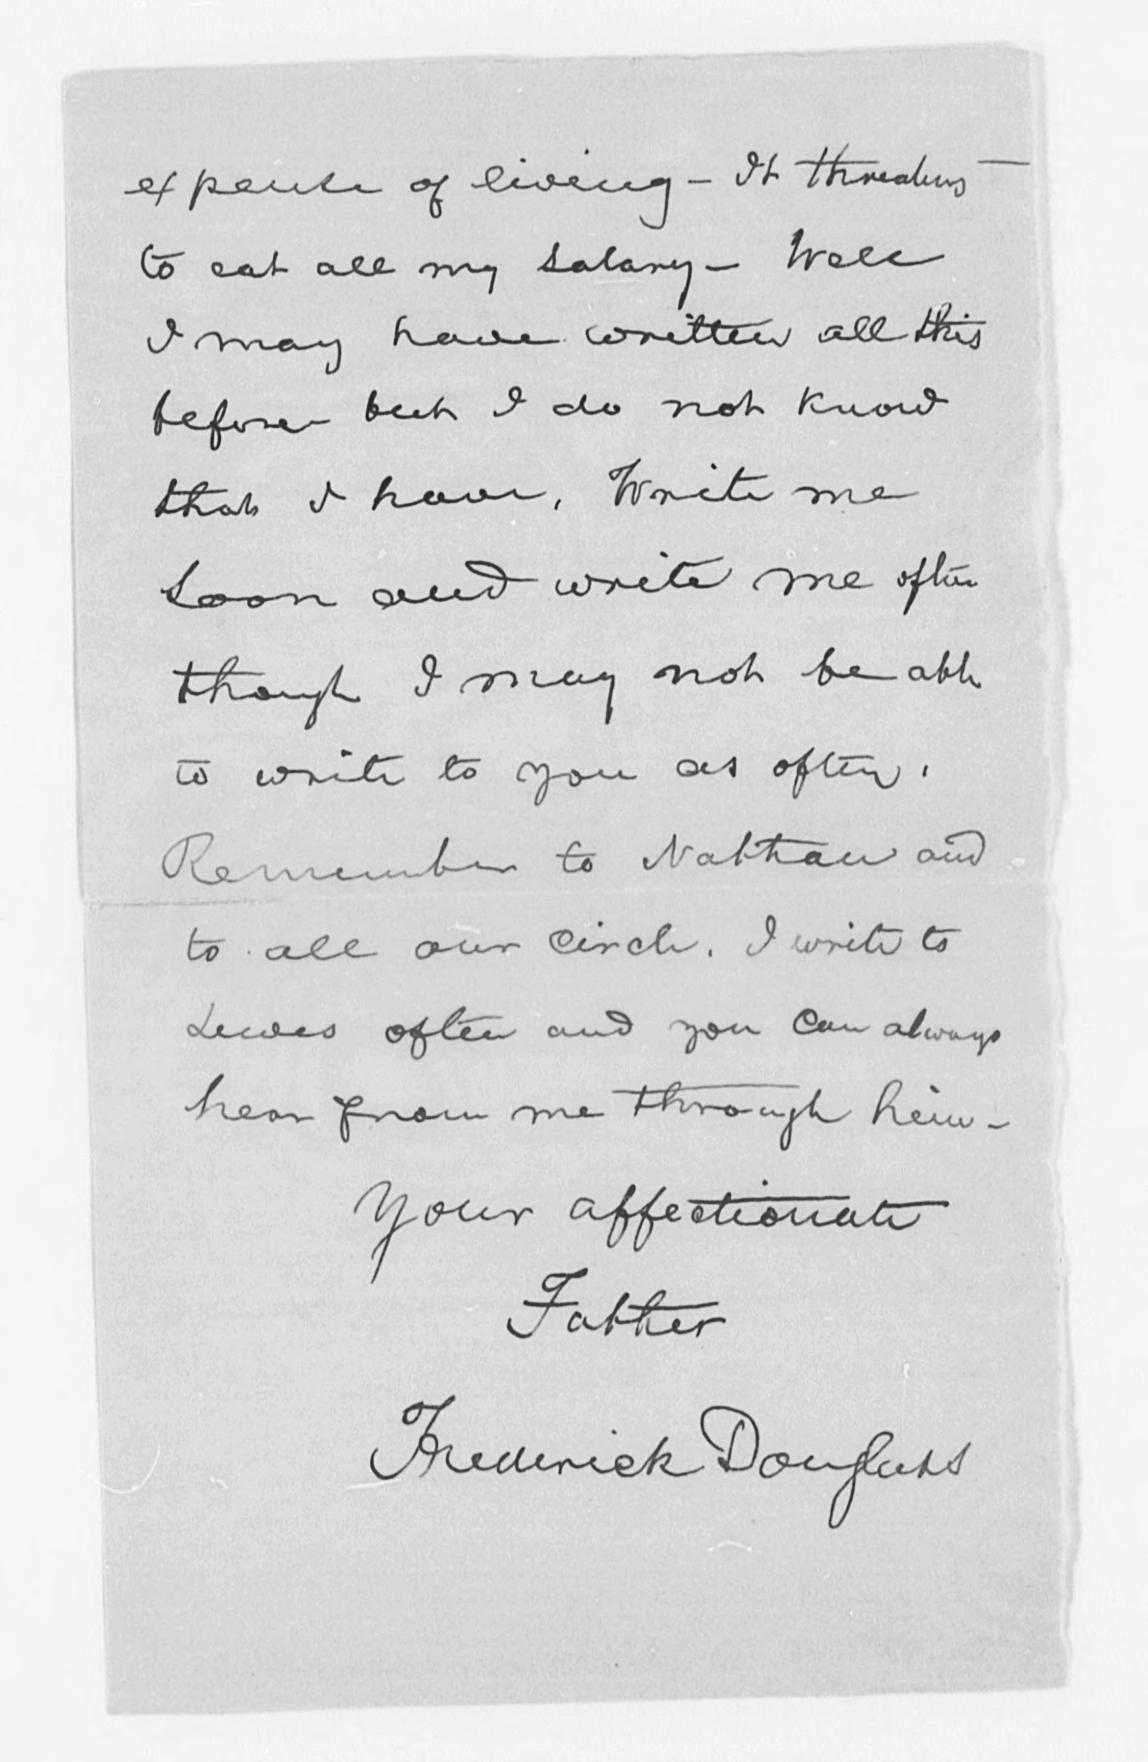 expense of living – It threatens
to eat all my salary – Well
I may have written all this
before but I do not know
that I have. Write me
soon and write me often
though I may not be able
to write to you as often.
Remember to Nathan and
to all our circle. I write to
Lewis often and you can always
hear from me through him –
Your affectionate
Father
Frederick Douglass